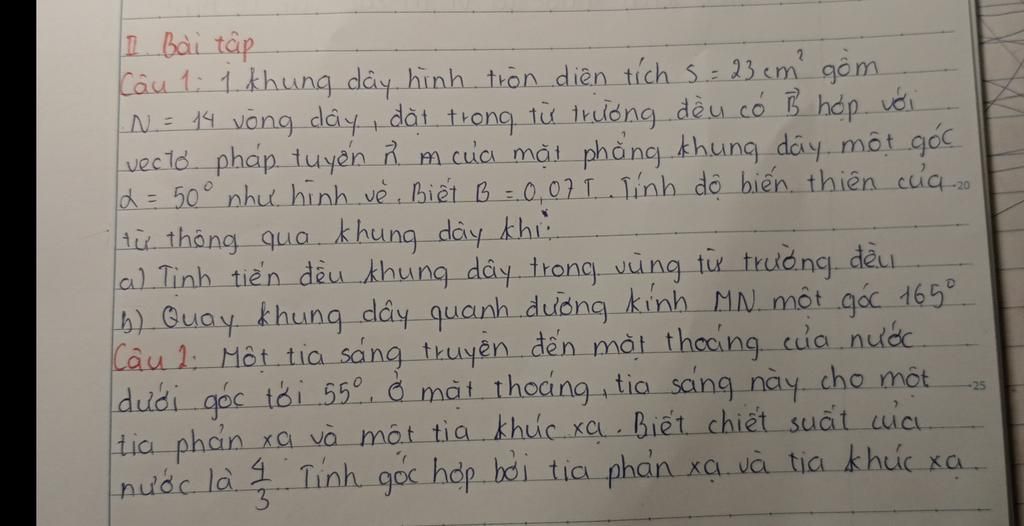 II. Bài tập
Câu 1: 1 khung dây hình tròn diện tích S = 23 cm² gồm
N = 14 vòng dây, đặt trong từ trường đều có B⃗ hợp với
vectơ pháp tuyến n⃗ m của mặt phẳng khung dây một góc
α = 50° như hình vẽ. Biết B = 0,07 T. Tính độ biến thiên của
từ thông qua khung dây khi:
a) Tịnh tiến đều khung dây trong vùng từ trường đều
b) Quay khung dây quanh đường kính MN một góc 165°
Câu 2: Một tia sáng truyền đến mặt thoáng của nước
dưới góc tới 55°. Ở mặt thoáng, tia sáng này cho một
tia phản xạ và một tia khúc xạ. Biết chiết suất của
nước là 4/3. Tính góc hợp bởi tia phản xạ và tia khúc xạ.
20
25